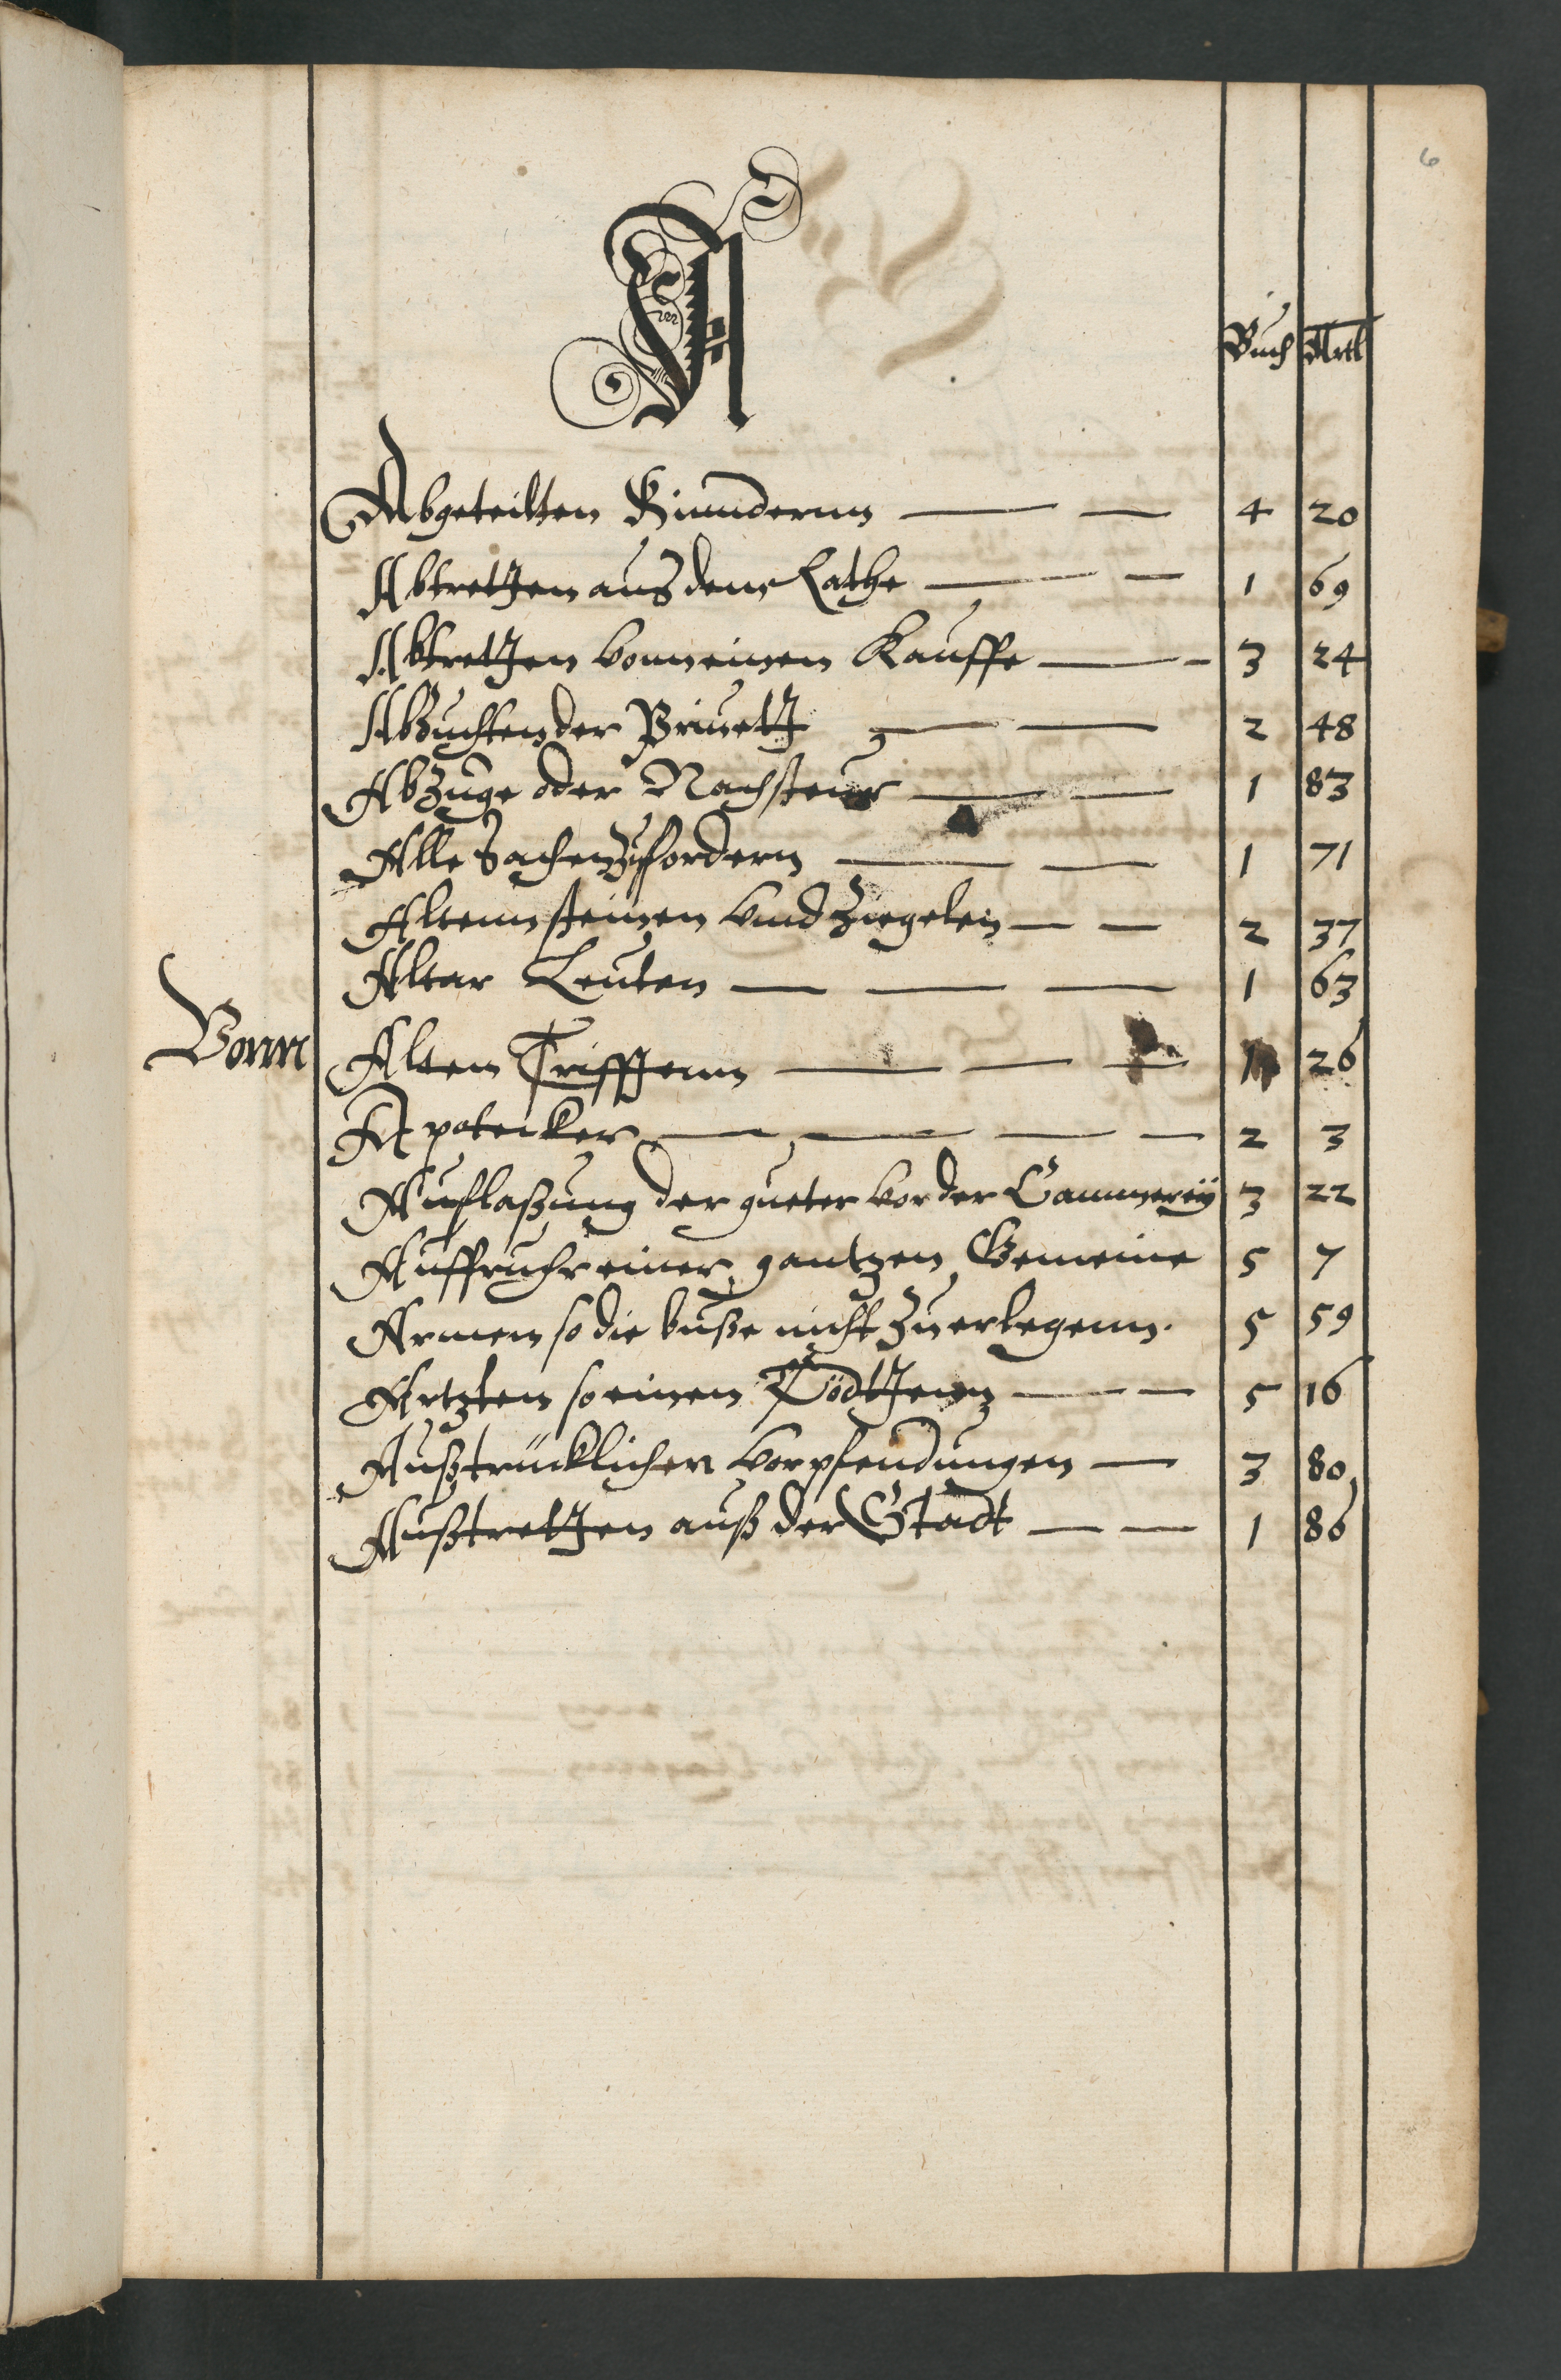 6
A
Buch Artl
Abgeteilten Kinndernn 4 20
Abtretten aus dem Rathe 1 69
Abtretten vonn einem Kauffe 3 24
Abzuchten der Priuett 2 48
Abzuge oder Nachsteur 1 83
Alle Sachen zu fordern 1 71
Altenn steinen vnnd Ziegelen 2 37
Altar Leuten 1 63
Vonn Alten Trifftenn 1 26
Apotecker 2 3
Auflaßung der gueter vor der Cammereÿ 3 22
Auffruhr einer gantzen Gemeine 5 7
Armen so die buße nicht zu erlegenn. 5 59
Artzten so einen Tödttenn 5 16
Außtrücklichen vorpfendungen 3 80
Außtretten auß der Stadt 1 86